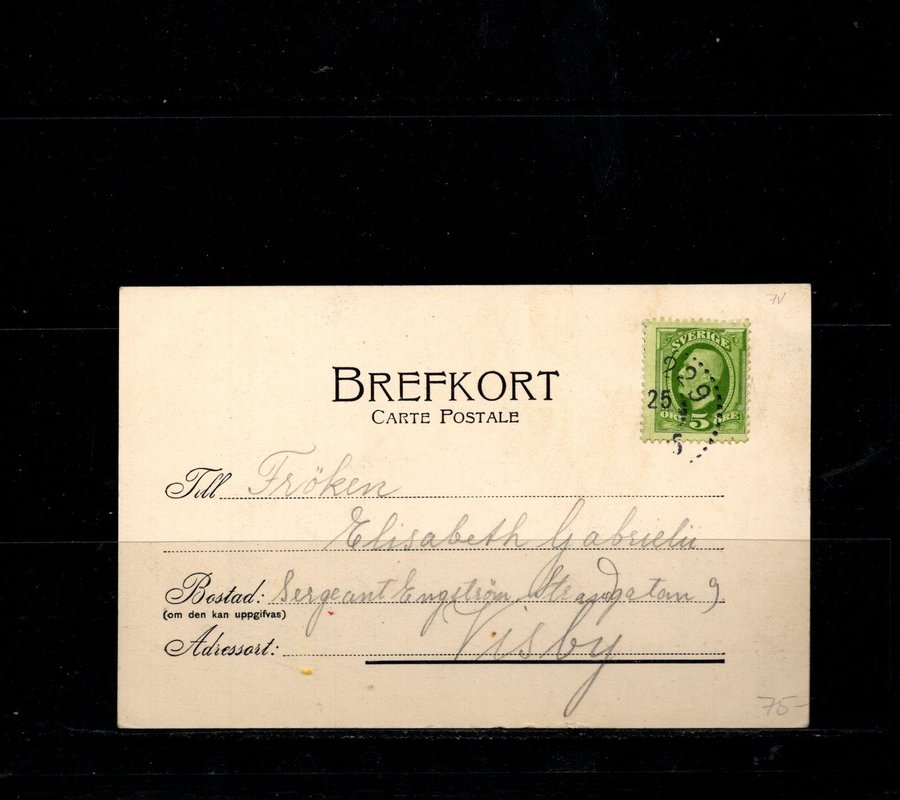 BREFKORT
CARTE POSTALE
SVERIGE
229
25
5
ÖRE 5 ÖRE
Till Fröken
Elisabeth Gabrielii
Bostad: Sergeant Engström, Strandgatan 9
(om den kan uppgifvas)
Adressort: Visby
75-